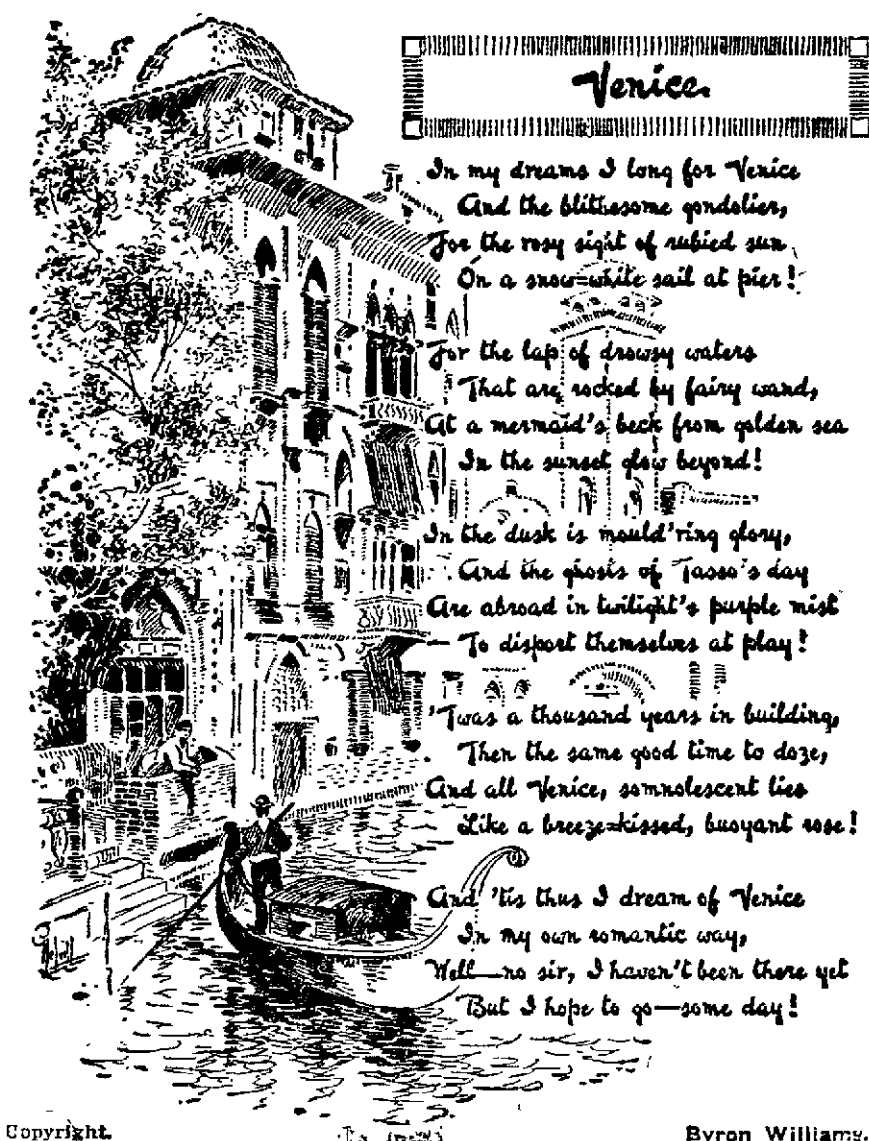 Venice.
In my dreams I long for Venice
And the blithesome gondolier,
For the rosy sight of rubied sun
On a snow=white sail at pier!
For the lap of drowsy waters
That are rocked by fairy wand,
At a mermaid's beck from golden sea
In the sunset glow beyond!
In the dusk is mould'ring glory,
And the ghosts of Tasso's day
Are abroad in twilight's purple mist
To disport themselves at play!
'Twas a thousand years in building,
Then the same good time to doze,
And all Venice, somnolescent lies
Like a breeze=kissed, buoyant rose!
And 'tis thus I dream of Venice
In my own romantic way,
Well—no sir, I haven't been there yet
But I hope to go—some day!
Copyright.
Byron Williams.